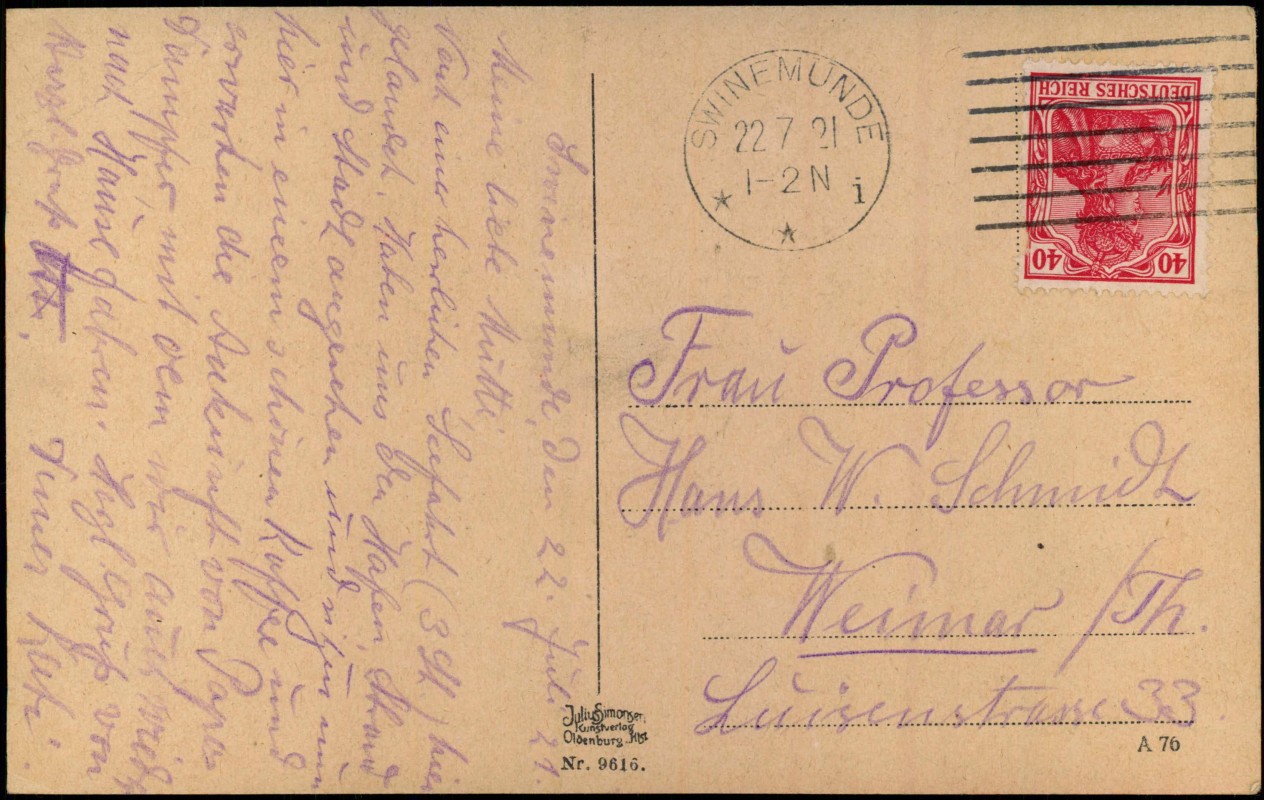 Swinemünde, den 22. Juli 21.
Meine liebe Mutti!
Nach einer herrlichen Seefahrt (3 St.) hier
gelandet. Haben uns den Hafen, Strand
und Stadt angesehen und sitzen nun
hier in einem schönen Kaffee und
erwarten die Ankunft von Papas
Dampfer, mit dem wir auch wieder
nach Hause fahren. Herzl. Gruß von
Deiner
Herzl. Gruß
SWINEMÜNDE
22 7 21
1-2 N
i
DEUTSCHES REICH
40 40
Frau Professor
Hans W. Schmidt
Weimar /Th.
Luisenstrasse 33
Julius Simonsen
Kunstverlag
Oldenburg i. Hlst
Nr. 9616.
A 76